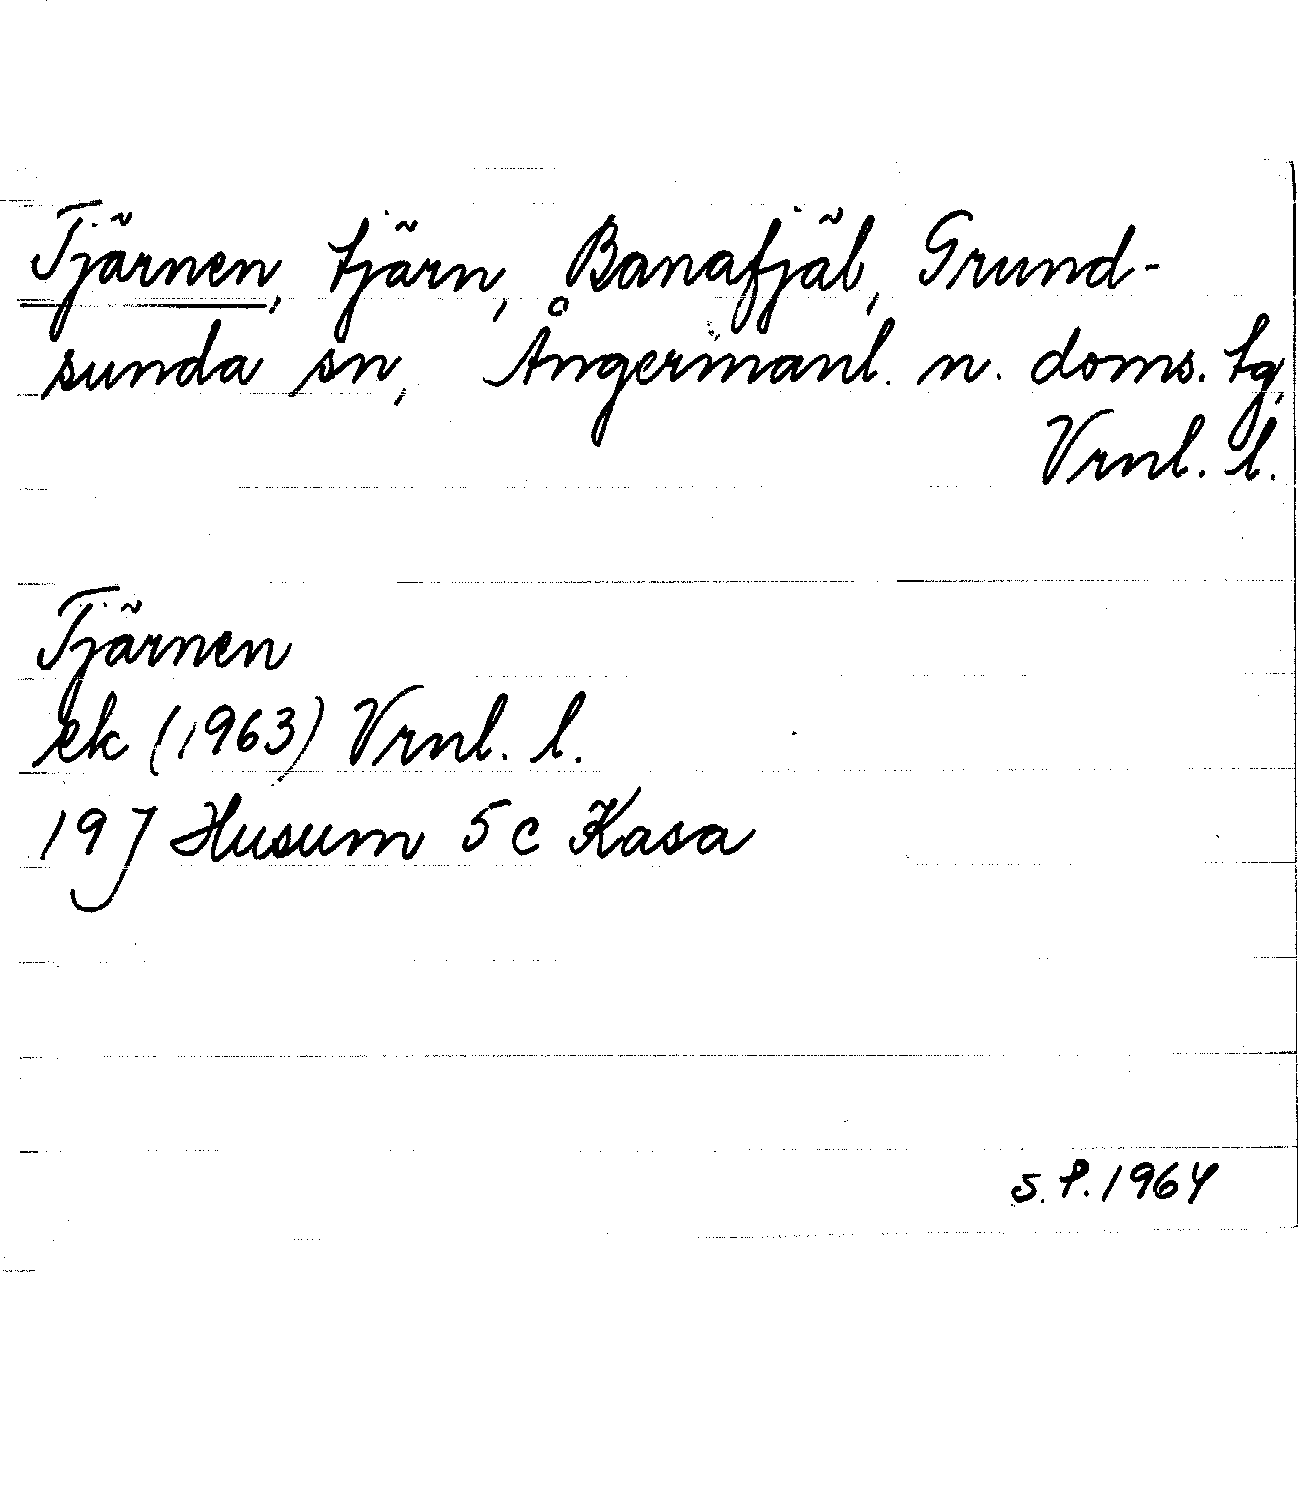 Tjärnen, tjärn, Banafjäl, Grund-
sunda sn, Ångermanl. n. doms. tg,
Vrnl. l.
Tjärnen
ek (1963) Vrnl. l.
19 J Husum 5 c Kasa
S. P. 1964